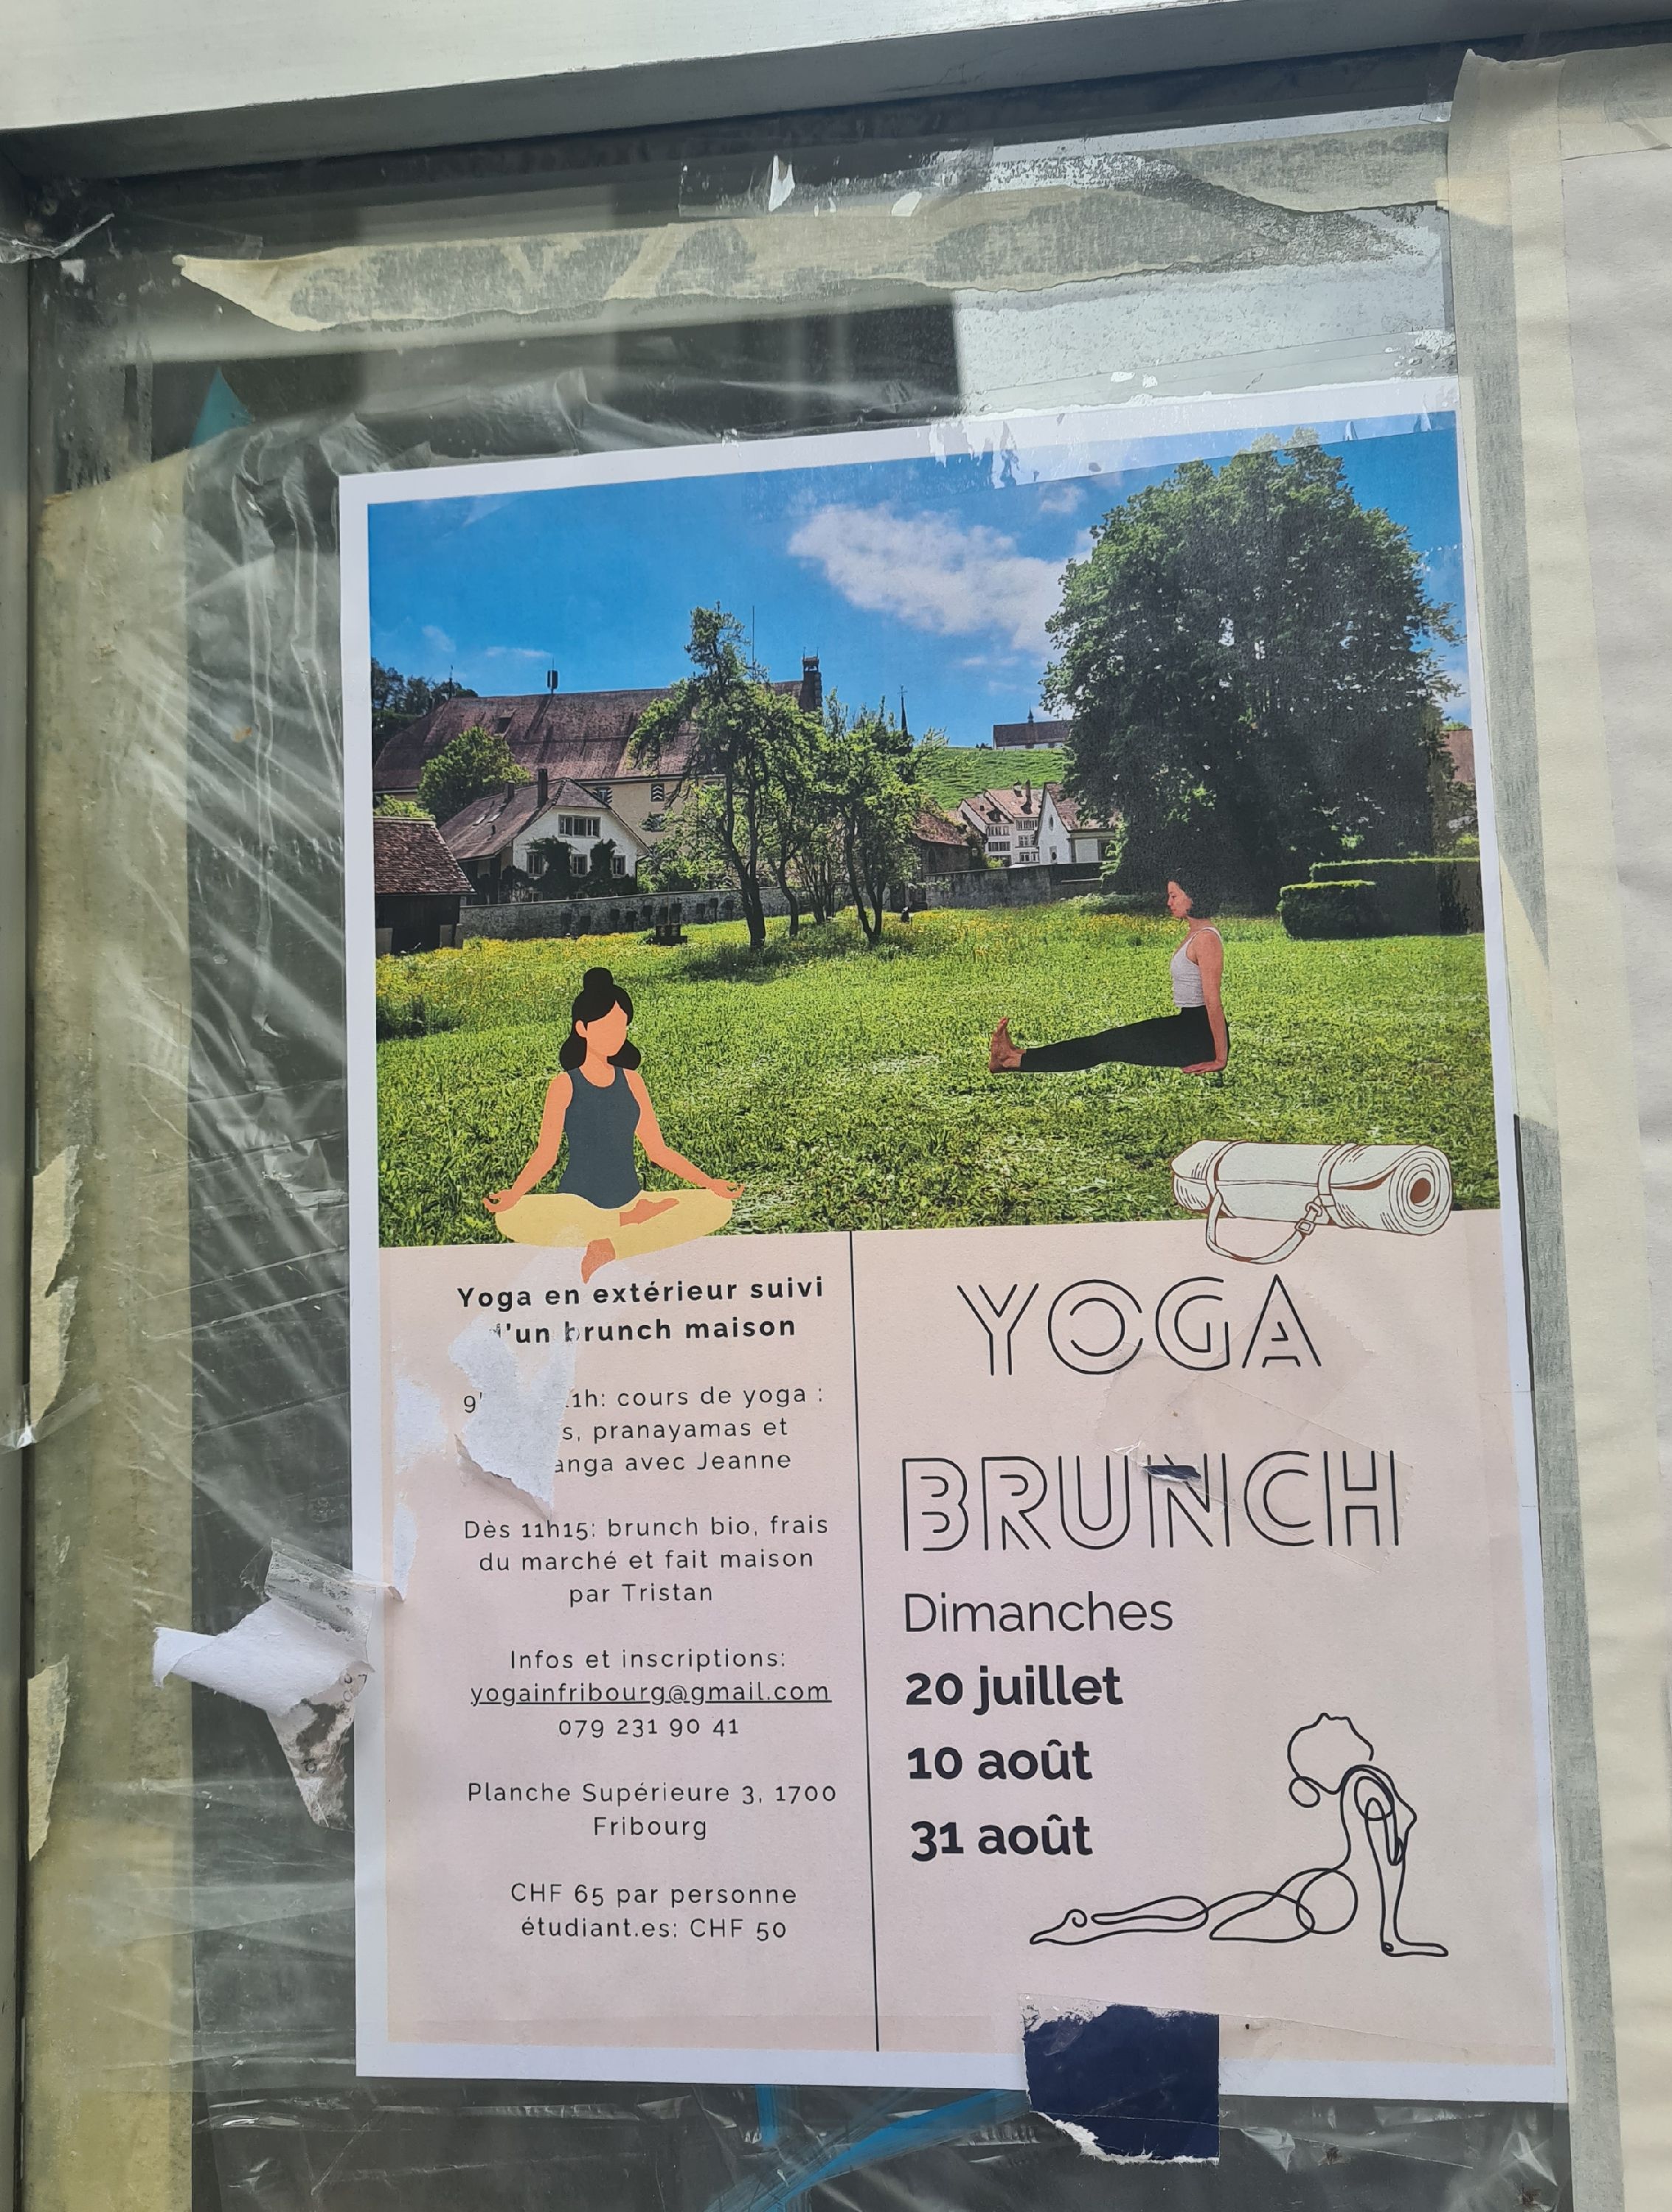 Yoga en extérieur suivi
d'un brunch maison
1h: cours de yoga :
pranayamas et
avec Jeanne
Dès 11h15: brunch bio, frais
du marché et fait maison
par Tristan
Infos et inscriptions:
yogainfribourg@gmail.com
079 231 90 41
Planche Supérieure 3, 1700
Fribourg
CHF 65 par personne
étudiant.es: CHF 50
YOGA
BRUNCH
Dimanches
20 juillet
10 août
31 août